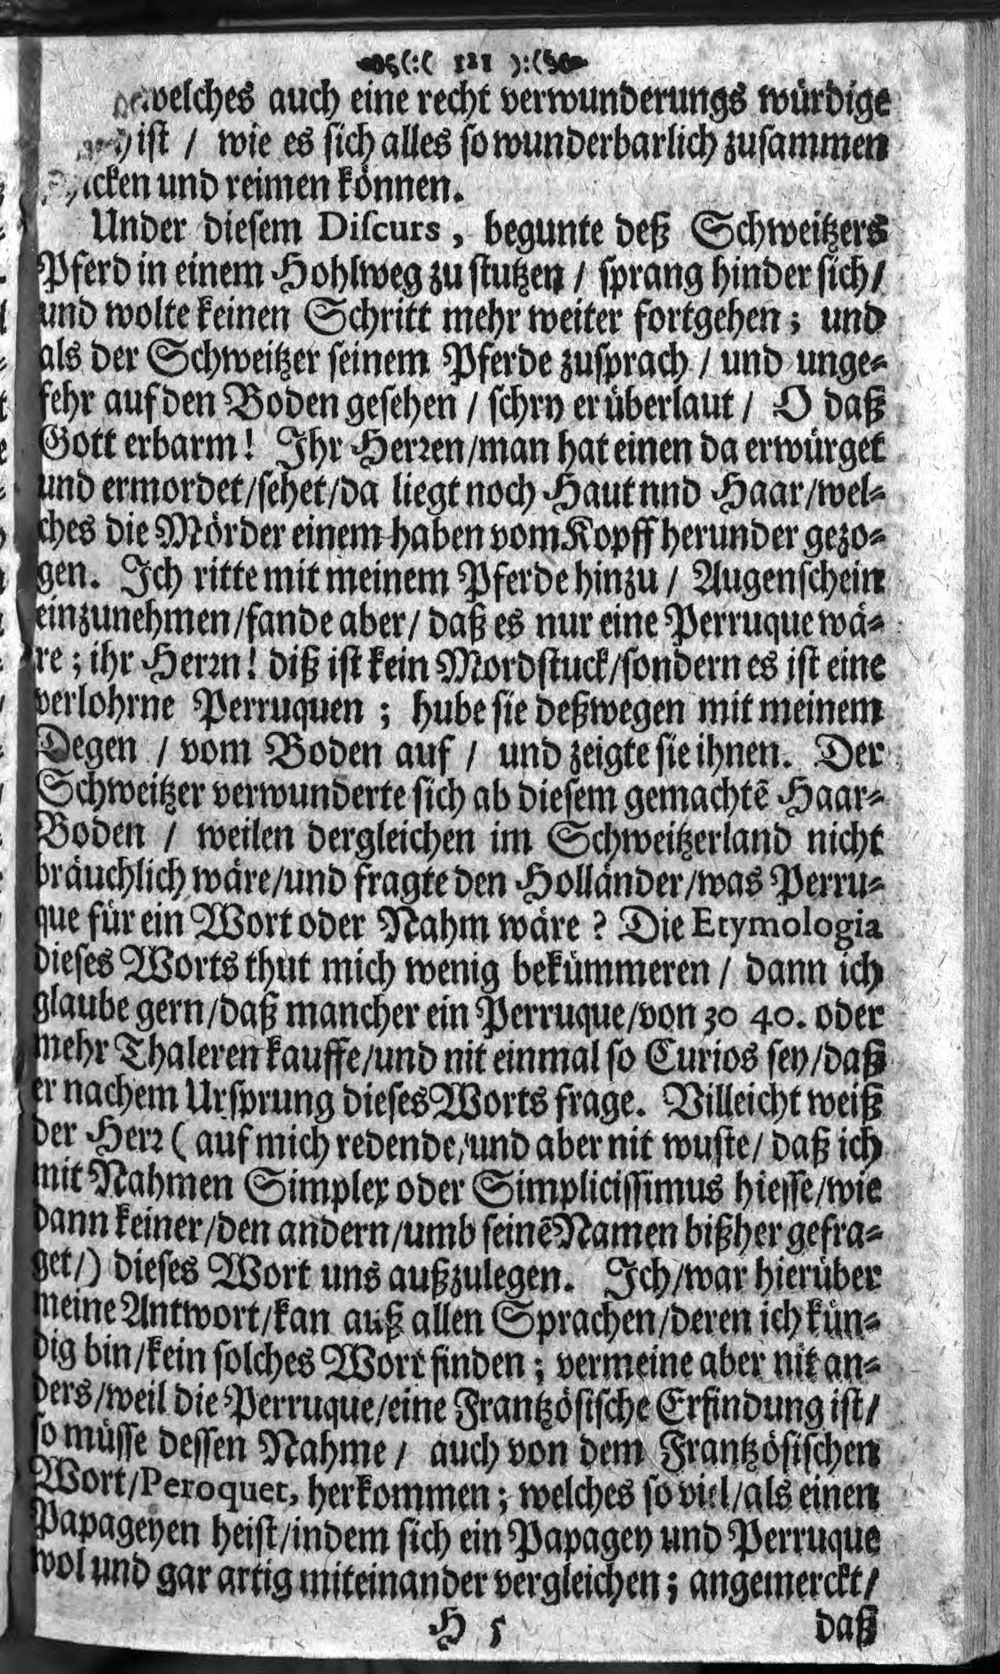 (:( 121 ):(
welches auch eine recht verwunderungs würdige
ist / wie es sich alles so wunderbarlich zusammen
und reimen können.
Under diesem Discurs, begunte deß Schweitzers
Pferd in einem Hohlweg zu stutzen / sprang hinder sich /
und wolte keinen Schritt mehr weiter fortgehen; und
als der Schweitzer seinem Pferde zusprach / und unge-
fehr auf den Boden gesehen / schry er überlaut / O daß
Gott erbarm! Ihr Herren/man hat einen da erwürget
und ermordet/sehet/da liegt noch Haut nnd Haar/wel-
ches die Mörder einem haben vom Kopff herunder gezo-
gen. Ich ritte mit meinem Pferde hinzu / Augenschein
einzunehmen/fande aber/ daß es nur eine Perruque wä-
re; ihr Herrn! diß ist kein Mordstuck/sondern es ist eine
verlohrne Perruquen ; hube sie deßwegen mit meinem
Degen / vom Boden auf / und zeigte sie ihnen. Der
Schweitzer verwunderte sich ab diesem gemachtē Haar-
Boden / weilen dergleichen im Schweitzerland nicht
bräuchlich wäre/und fragte den Holländer/was Perru-
que für ein Wort oder Nahm wäre ? Die Etymologia
dieses Worts thut mich wenig bekümmeren / dann ich
glaube gern/daß mancher ein Perruque/von 30 40. oder
mehr Thaleren kauffe/und nit einmal so Curios sey/daß
er nachem Ursprung dieses Worts frage. Villeicht weiß
der Herr ( auf mich redende/und aber nit wuste/ daß ich
mit Nahmen Simplex oder Simplicissimus hiesse/wie
dann keiner/den andern/umb seinē Namen bißher gefra-
get/) dieses Wort uns außzulegen. Ich/war hierüber
meine Antwort/kan auß allen Sprachen/deren ich kün-
dig bin/kein solches Wort finden; vermeine aber nit an-
ders/weil die Perruque/eine Frantzösische Erfindung ist/
so müsse dessen Nahme / auch von dem Frantzösischen
Wort/Peroquet, herkommen; welches so viel/als einen
Papageyen heist/indem sich ein Papagey und Perruque
wol und gar artig miteinander vergleichen; angemerckt/
H 5
daß